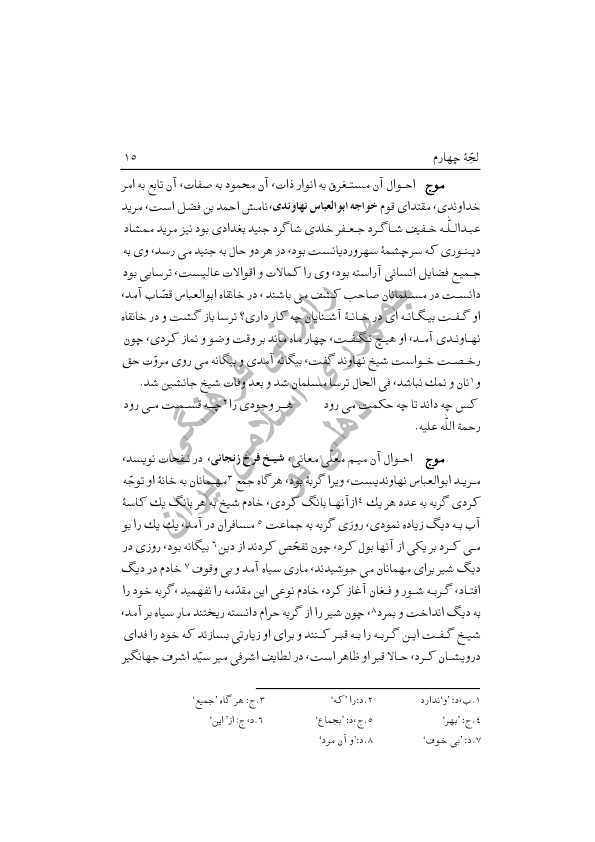 لجّهٔ چهارم ۱۵
موج احوال آن مستغرق به انوار ذات، آن محمود به صفات، آن تابع به امر
خداوندی، مقتدای قوم خواجه ابوالعباس نهاوندی،نامش احمد بن فضل است، مرید
عبداللّٰه خفیف شاگرد جعفر خلدی شاگرد جنید بغدادی بود نیز مرید ممشاد
دینوری که سرچشمهٔ سهروردیانست بود، در هر دو حال به جنید می رسد، وی به
جمیع فضایل انسانی آراسته بود، وی را کمالات و اقوالات عالیست، ترسایی بود
دانست در مسلمانان صاحب کشف می باشند ، در خانقاه ابوالعباس قصّاب آمد،
او گفت بیگانه ای در خانهٔ آشنایان چه کار داری؟ ترسا باز گشت و در خانقاه
نهاوندی آمد، او هیچ نگفت، چهار ماه ماند بر وقت وضو و نماز کردی، چون
رخصت خواست شیخ نهاوند گفت، بیگانه آمدی و بیگانه می روی مروّت حق
و ۱نان و نمك نباشد، فی الحال ترسا مسلمان شد و بعد وفات شیخ جانشین شد.
کس چه داند تا چه حکمت می رود هر وجودی را ۲چه قسمت می رود
رحمة اللّٰه علیه.
موج احوال آن میم معلّی معانی، شیخ فرخ زنجانی، در نفحات نویسد،
مرید ابوالعباس نهاوندیست، ویرا گربه بود، هرگاه جمع ۳مهمانان به خانهٔ او توجّه
کردی گربه به عدد هر یك ٤ازآنها بانگ کردی، خادم شیخ به هر بانگ یك کاسهٔ
آب به دیگ زیاده نمودی، روزی گربه به جماعت ٥ مسافران در آمد، یك یك را بو
می کرد بر یکی از آنها بول کرد، چون تفحّص کردند از دین ٦ بیگانه بود، روزی در
دیگ شیر برای مهمانان می جوشیدند، ماری سیاه آمد و بی وقوف ۷ خادم در دیگ
افتاد، گربه شور و فغان آغاز کرد، خادم نوعی این مقدّمه را نفهمید ،گربه خود را
به دیگ انداخت و بمرد ۸، چون شیر را از گربه حرام دانسته ریختند مار سیاه بر آمد،
شیخ گفت این گربه را به قبر کنند و برای او زیارتی بسازند که خود را فدای
درویشان کرد، حالا قبر او ظاهر است، در لطایف اشرفی میر سیّد اشرف جهانگیر
۱.ب،د: 'و'ندارد ۲.د:را 'که' ۳.ج: هر گاه 'جمیع'
٤.ج: 'بهر' ٥.ج،د: 'بجماع' ٦.د،ج: از' این'
۷.د: 'بی خوف' ۸.د:'و آن مرد'
جمهوری اسلامی ایران
رایزنی فرهنگی
دهلی نو